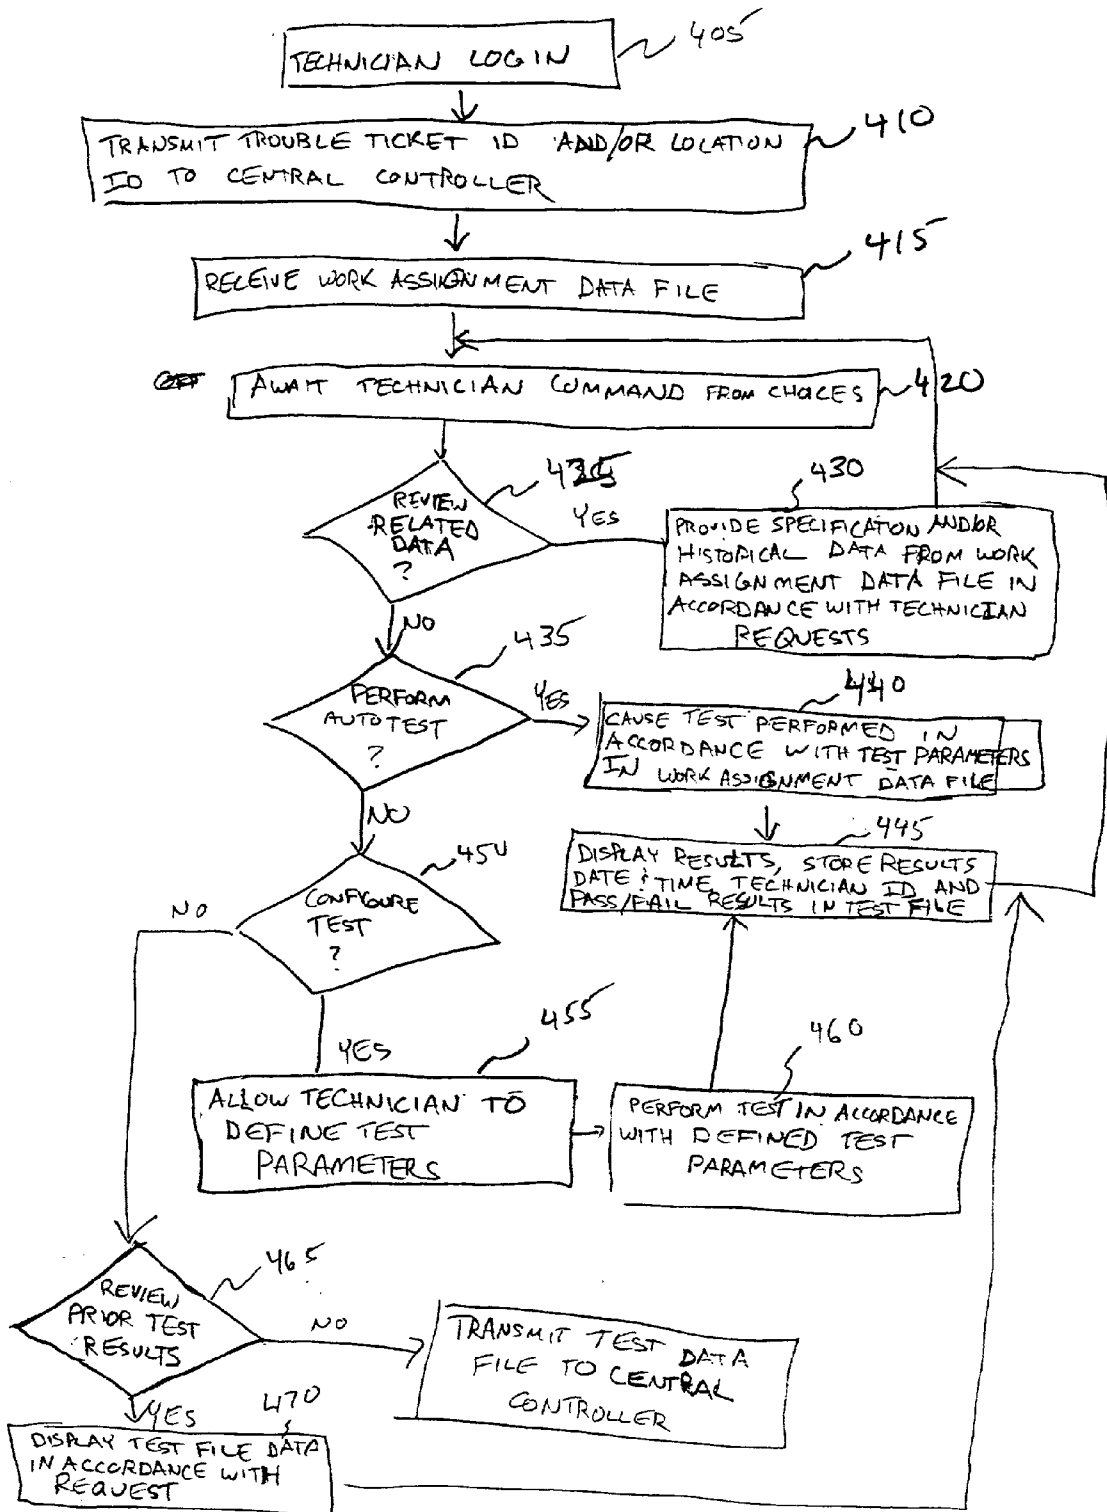 TECHNICIAN LOGIN
405
TRANSMIT TROUBLE TICKET ID AND/OR LOCATION
ID TO CENTRAL CONTROLLER
410
RECEIVE WORK ASSIGNMENT DATA FILE
415
AWAIT TECHNICIAN COMMAND FROM CHOICES
420
REVIEW
RELATED
DATA
?
YES
430
PROVIDE SPECIFICATION AND/OR
HISTORICAL DATA FROM WORK
ASSIGNMENT DATA FILE IN
ACCORDANCE WITH TECHNICIAN
REQUESTS
NO
435
PERFORM
AUTO TEST
?
YES
440
CAUSE TEST PERFORMED IN
ACCORDANCE WITH TEST PARAMETERS
IN WORK ASSIGNMENT DATA FILE
NO
445
DISPLAY RESULTS, STORE RESULTS
DATE & TIME, TECHNICIAN ID AND
PASS/FAIL RESULTS IN TEST FILE
450
CONFIGURE
TEST
?
NO
YES
455
ALLOW TECHNICIAN TO
DEFINE TEST
PARAMETERS
460
PERFORM TEST IN ACCORDANCE
WITH DEFINED TEST
PARAMETERS
465
REVIEW
PRIOR TEST
RESULTS
NO
TRANSMIT TEST DATA
FILE TO CENTRAL
CONTROLLER
YES
470
DISPLAY TEST FILE DATA
IN ACCORDANCE WITH
REQUEST